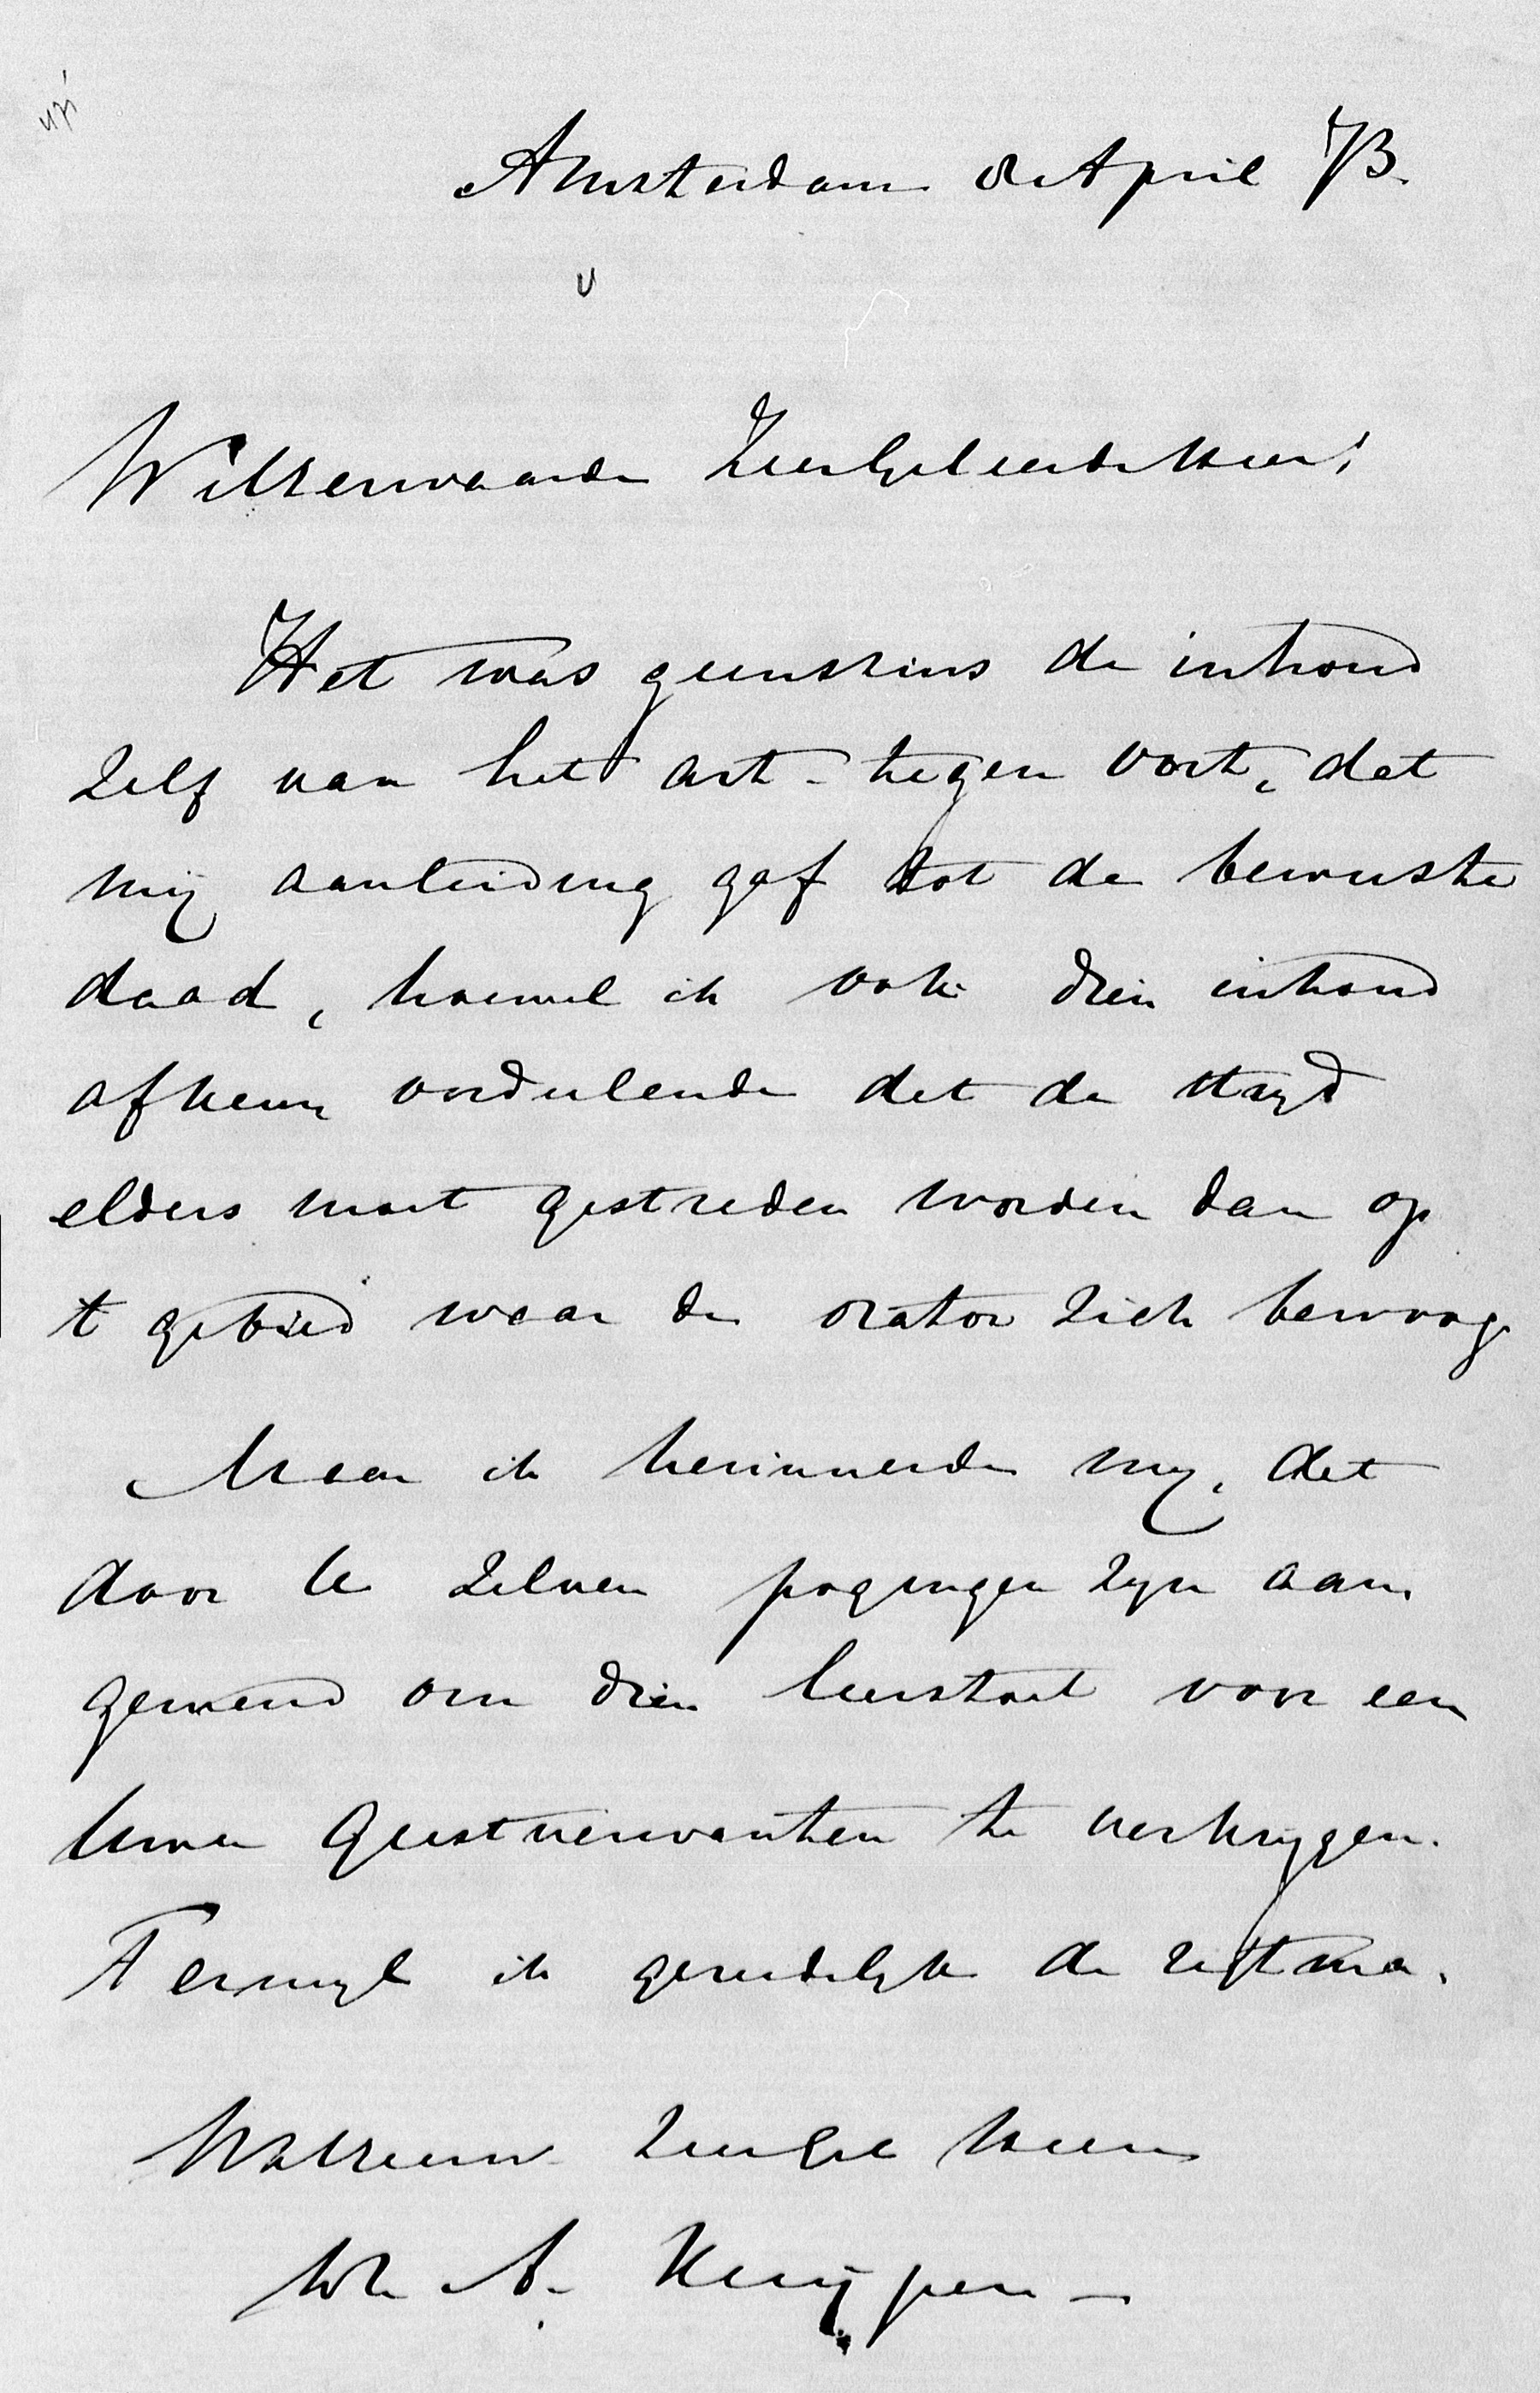 Amsterdam 8 April 73.
WelEerwaarde ZeerGeleerde Heer!
Het was geenszins de inhoud
zelf van het art. tegen Oort, dat
mij aanleiding gaf tot de bewuste
daad, hoewel ik ook dien inhoud
afkeur oordeelende dat de strijd
elders moet gestreden worden dan op
't gebied waar de orator zich bewoog
Maar ik herinnerde mij, dat
door U zelven pogingen zijn aan
gewend om dien leerstoel voor een
Uwer Geestverwanten te verkrijgen.
Terwyl ik
WelEerw. ZeerGel Heer
A. Kuyper